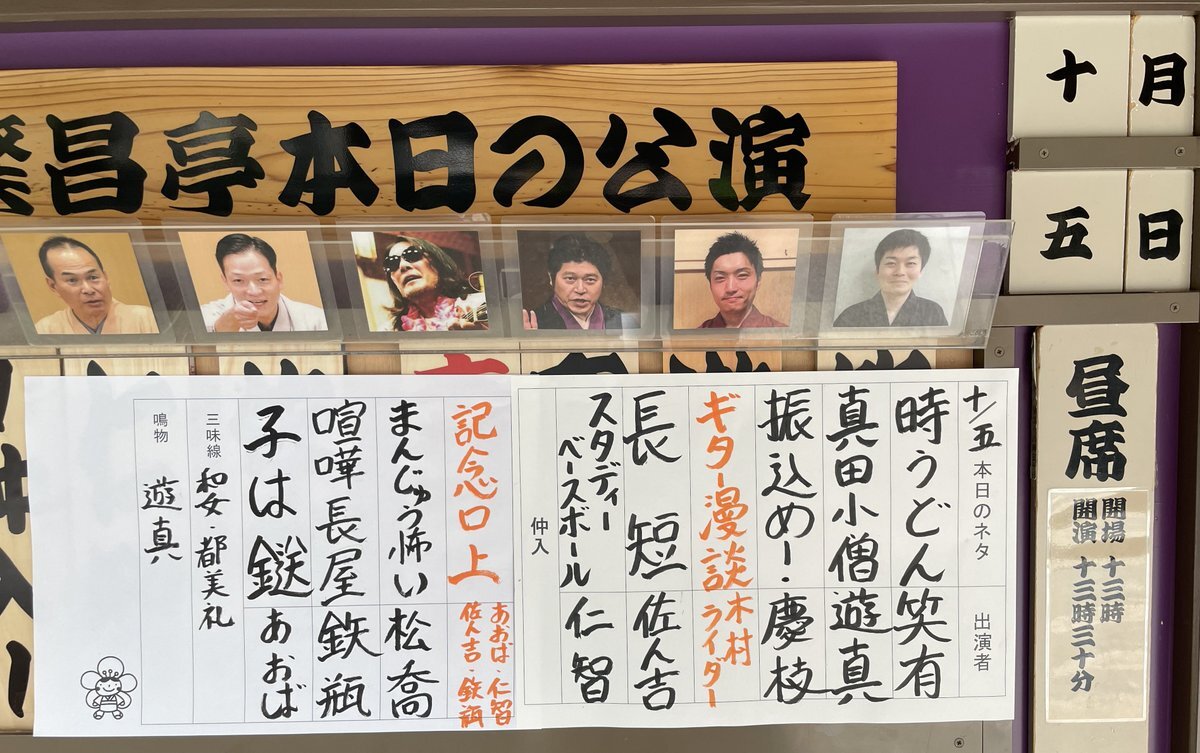 繁昌亭本日の公演
十月
五日
昼席
開場 十三時
開演 十三時三十分
十/五 本日のネタ 出演者
時うどん 笑有
真田小僧 遊真
振込め! 慶枝
ギター漫談 木村ライダー
長短 佐ん吉
スタディーベースボール 仁智
仲入
記念口上 あおば・仁智 佐ん吉・鉄瓶
まんじゅう怖い 松喬
喧嘩長屋 鉄瓶
子は鎹 あおば
三味線 和女・都美礼
鳴物 遊真